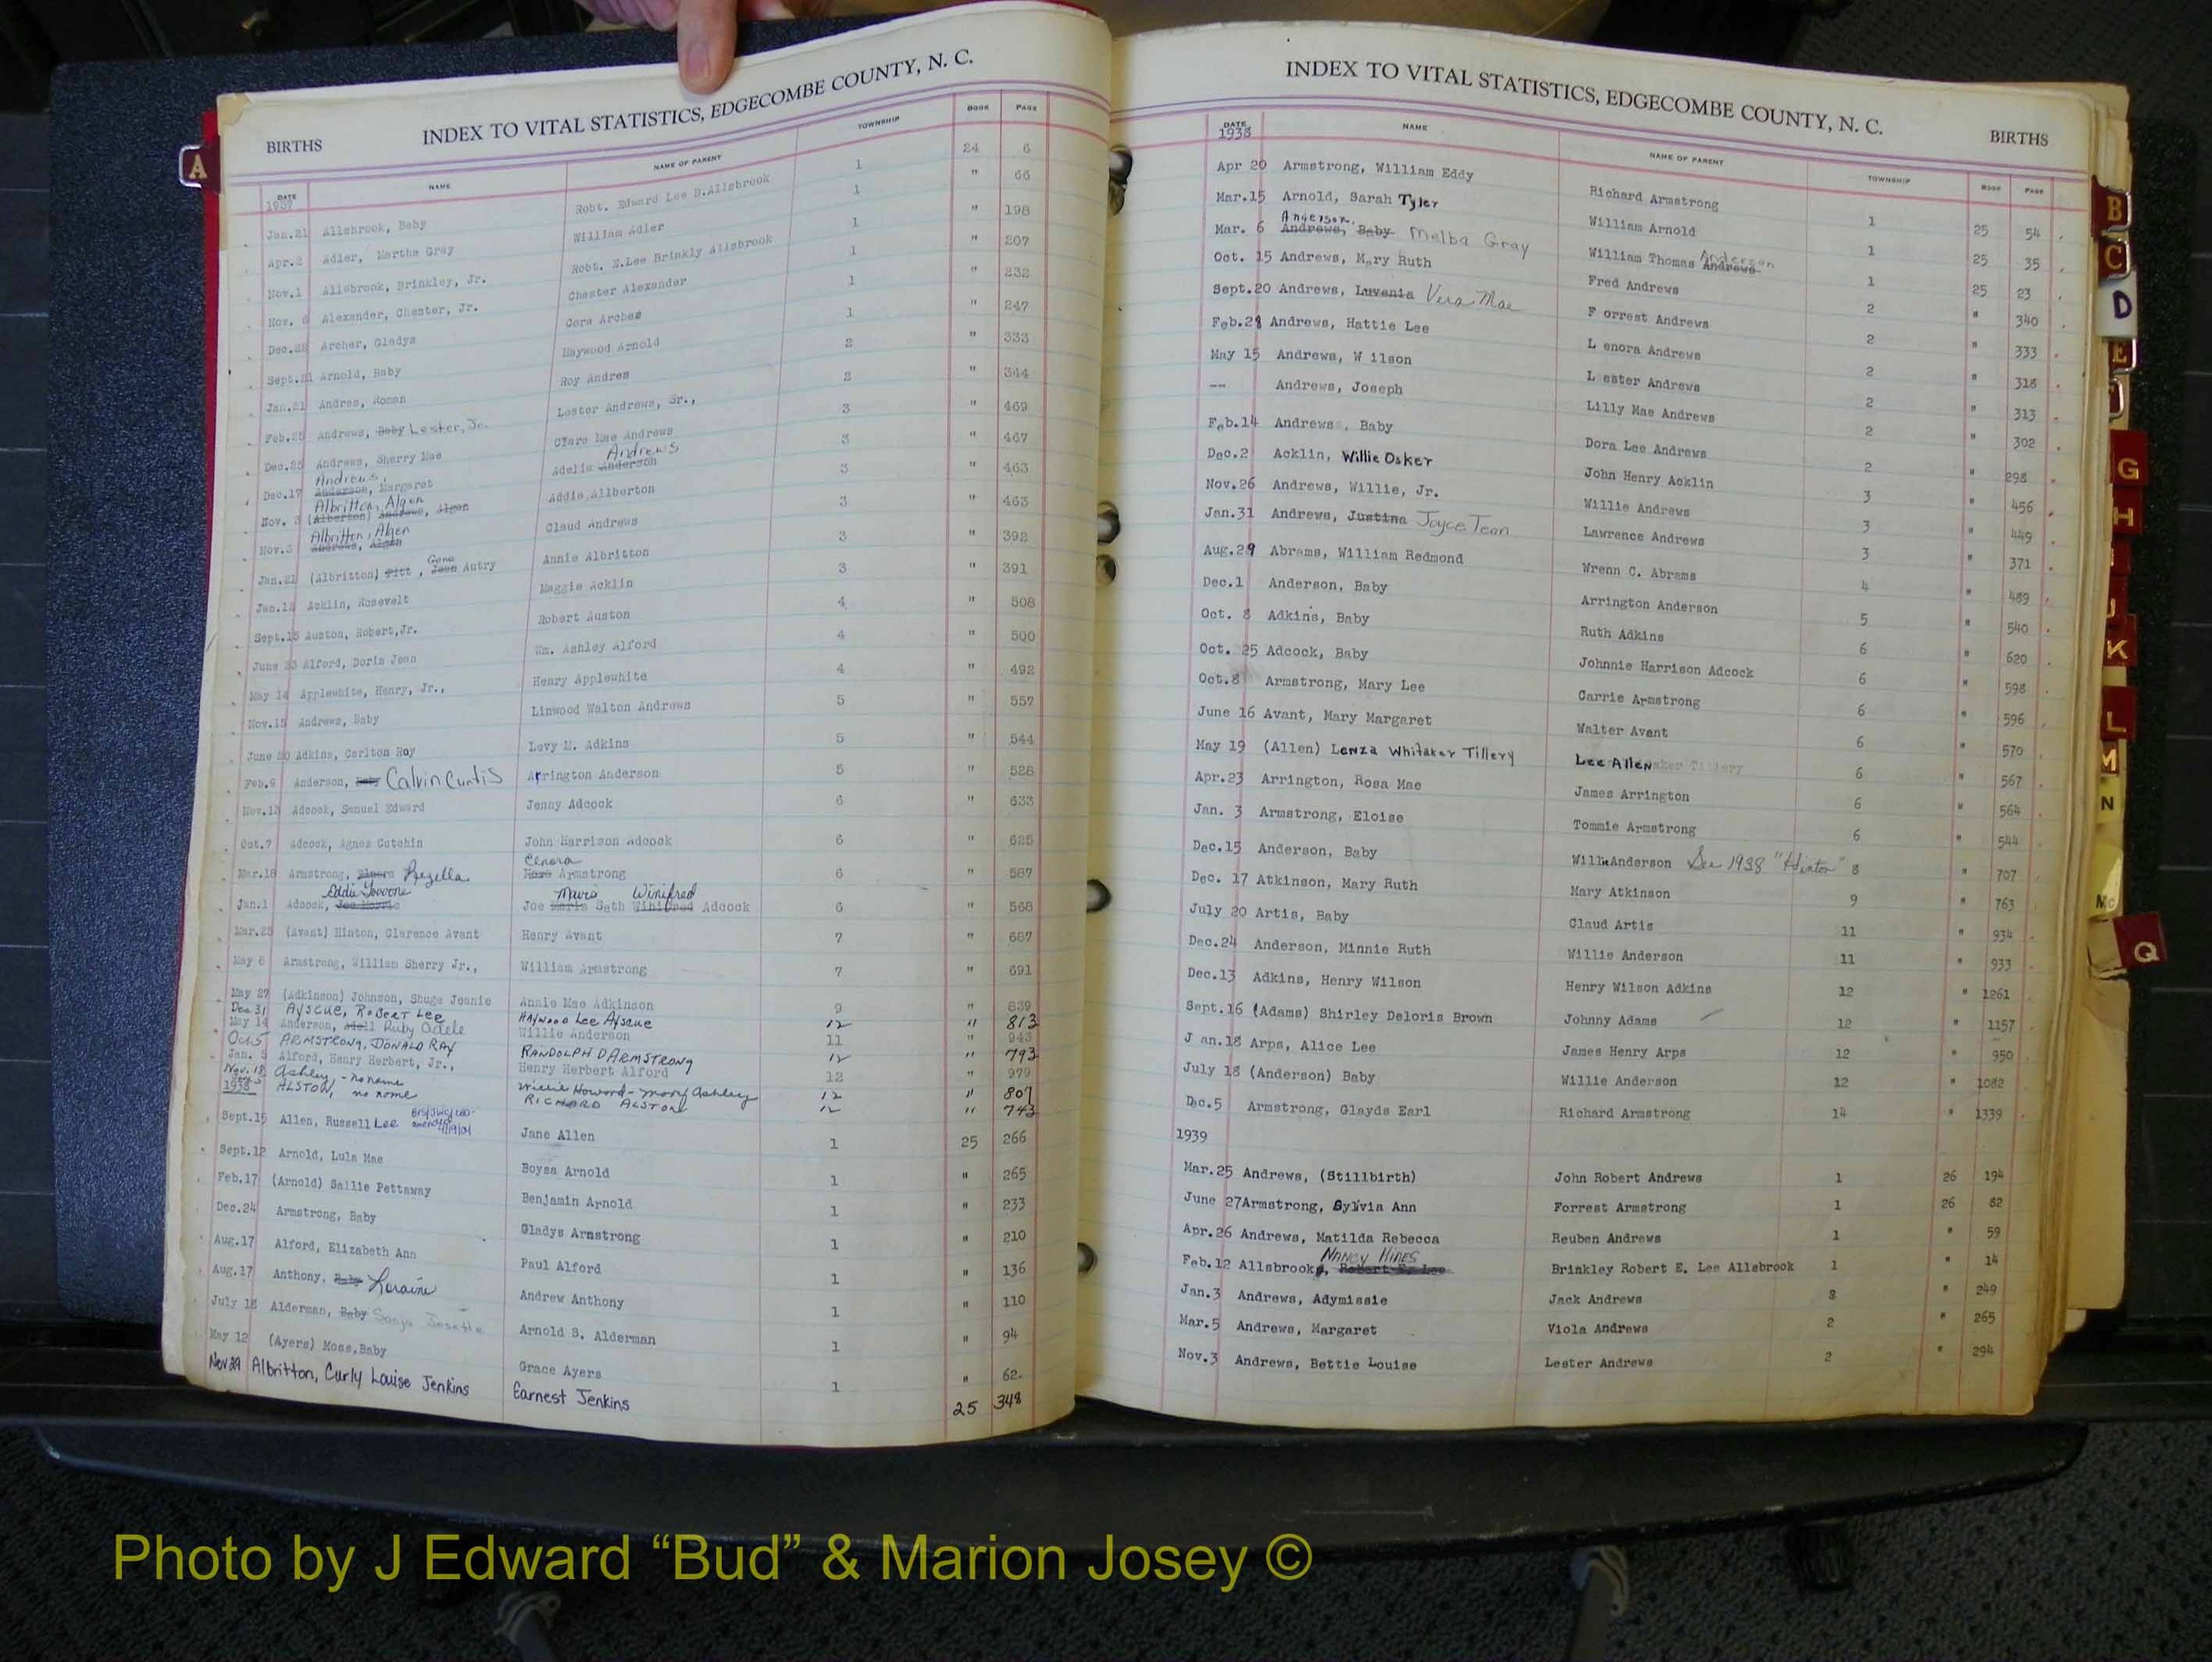 INDEX TO VITAL STATISTICS, EDGECOMBE COUNTY, N. C.
BIRTHS
DATE NAME NAME OF PARENT TOWNSHIP BOOK PAGE
1937
Jan.21 Allsbrook, Baby Robt. Edward Lee B.Allsbrook 1 24 6
Apr.2 Adler, Martha Gray William Adler 1 " 66
Nov.1 Allsbrook, Brinkley, Jr. Robt. E.Lee Brinkly Allsbrook 1 " 198
Nov. 6 Alexander, Chester, Jr. Chester Alexander 1 " 207
Dec.28 Archer, Gladys Cora Archer 1 " 232
Sept.21 Arnold, Baby Haywood Arnold 1 " 247
Jan.21 Andres, Roman Roy Andres 2 " 333
Feb.25 Andrews, Baby Lester, Jr. Lester Andrews, Sr., 2 " 344
Dec.25 Andrews, Sherry Mae Clara Mae Andrews 3 " 469
Dec.17 Andrews, Anderson, Margaret Adelia Anderson Andrews 3 " 467
Nov. 3 Albritton, Algen (Alberton) Andrews, Algen Addie Allberton 3 " 463
Nov.3 Albritton, Algen Andrews, Algen Claud Andrews 3 " 463
Jan.21 (Albritton) Pitt, Gene Jean Autry Annie Albritton 3 " 392
Jan.12 Acklin, Rosevelt Maggie Acklin 3 " 391
Sept.15 Auston, Robert,Jr. Robert Auston 4 " 508
June 23 Alford, Doris Jean Wm. Ashley Alford 4 " 500
May 14 Applewhite, Henry, Jr., Henry Applewhite 4 " 492
Nov.15 Andrews, Baby Linwood Walton Andrews 5 " 557
June 20 Adkins, Carlton Ray Levy M. Adkins 5 " 544
Feb.9 Anderson, Baby Calvin Curtis Arrington Anderson 5 " 528
Nov.13 Adcock, Samuel Edward Jenny Adcock 6 " 633
Oct.7 Adcock, Agnes Cutchin John Harrison Adcock 6 " 625
Mar.18 Armstrong, Elnora Rezella Elnora Armstrong 6 " 587
Jan.1 Adcock, Addie Yvonne Joe Mavis Seth Winifred Adcock 6 " 568
Mar.25 (Avant) Hinton, Clarence Avant Henry Avant 7 " 687
May 8 Armstrong, William Sherry Jr., William Armstrong 7 " 691
May 27 (Adkinson) Johnson, Shuge Jeanie Annie Mae Adkinson 9 " 839
Dec 31 Ayscue, Robert Lee Haywood Lee Ayscue 12 " 813
May 14 Anderson, Adell Ruby Odele Willie Anderson 11 " 943
Oct 5 ARMSTRONG, DONALD RAY RANDOLPH D ARMSTRONG 12 " 793
Jan. 5 Alford, Henry Herbert, Jr., Henry Herbert Alford 12 " 979
Nov. 18 Ashley, - no name Willie Howard - Mary Ashley 12 " 807
ALSTON, no name RICHARD ALSTON 12 " 743
1938
Sept.15 Allen, Russell Lee Jane Allen 1 25 266
Sept.12 Arnold, Lula Mae Boysa Arnold 1 " 265
Feb.17 (Arnold) Sallie Pettaway Benjamin Arnold 1 " 233
Dec.24 Armstrong, Baby Gladys Armstrong 1 " 210
Aug.17 Alford, Elizabeth Ann Paul Alford 1 " 136
Aug.17 Anthony, Baby Loraine Andrew Anthony 1 " 110
July 18 Alderman, Baby Sonja Josette Arnold S. Alderman 1 " 94
May 12 (Ayers) Moss,Baby Grace Ayers 1 " 62.
Nov 29 Albritton, Curly Louise Jenkins Earnest Jenkins 25 348
INDEX TO VITAL STATISTICS, EDGECOMBE COUNTY, N. C.
BIRTHS
DATE NAME NAME OF PARENT TOWNSHIP BOOK PAGE
1938
Apr 20 Armstrong, William Eddy Richard Armstrong 1 25 54
Mar.15 Arnold, Sarah Tyler William Arnold 1 25 35
Mar. 6 Anderson, Andrews, Baby Melba Gray William Thomas Andrews Anderson 1 25 23
Oct. 15 Andrews, Mary Ruth Fred Andrews 2 " 340
Sept.20 Andrews, Luvenia Vera Mae Forrest Andrews 2 " 333
Feb.28 Andrews, Hattie Lee Lenora Andrews 2 " 318
May 15 Andrews, Wilson Lester Andrews 2 " 313
-- Andrews, Joseph Lilly Mae Andrews 2 " 302
Feb.14 Andrews, Baby Dora Lee Andrews 2 " 298
Dec.2 Acklin, Willie Osker John Henry Acklin 3 " 456
Nov.26 Andrews, Willie, Jr. Willie Andrews 3 " 449
Jan.31 Andrews, Justina Joyce Jean Lawrence Andrews 3 " 371
Aug.29 Abrams, William Redmond Wrenn C. Abrams 4 " 489
Dec.1 Anderson, Baby Arrington Anderson 5 " 540
Oct. 8 Adkins, Baby Ruth Adkins 6 " 620
Oct. 25 Adcock, Baby Johnnie Harrison Adcock 6 " 598
Oct.8 Armstrong, Mary Lee Carrie Armstrong 6 " 596
June 16 Avant, Mary Margaret Walter Avant 6 " 570
May 19 (Allen) Lenza Whitaker Tillery Lee Allen 6 " 567
Apr.23 Arrington, Rosa Mae James Arrington 6 " 564
Jan. 3 Armstrong, Eloise Tommie Armstrong 6 " 544
Dec.15 Anderson, Baby Willie Anderson See 1938 "Hinton" 8 " 707
Dec. 17 Atkinson, Mary Ruth Mary Atkinson 9 " 763
July 20 Artis, Baby Claud Artis 11 " 934
Dec.24 Anderson, Minnie Ruth Willie Anderson 11 " 933
Dec.13 Adkins, Henry Wilson Henry Wilson Adkins 12 " 1261
Sept.16 (Adams) Shirley Deloris Brown Johnny Adams 12 " 1157
Jan.18 Arps, Alice Lee James Henry Arps 12 " 950
July 18 (Anderson) Baby Willie Anderson 12 " 1082
Dec.5 Armstrong, Glayds Earl Richard Armstrong 14 " 1339
1939
Mar.25 Andrews, (Stillbirth) John Robert Andrews 1 26 194
June 27 Armstrong, Sylvia Ann Forrest Armstrong 1 26 82
Apr.26 Andrews, Matilda Rebecca Reuben Andrews 1 " 59
Feb.12 Allsbrook, Nancy Hines Robert E. Lee Brinkley Robert E. Lee Allsbrook 1 " 14
Jan.3 Andrews, Adymissie Jack Andrews 8 " 249
Mar.5 Andrews, Margaret Viola Andrews 2 " 265
Nov.3 Andrews, Bettie Louise Lester Andrews 2 " 294
A
B
C
D
E
G
H
I
J
K
L
M
N
Mc
Q
Photo by J Edward “Bud” & Marion Josey ©